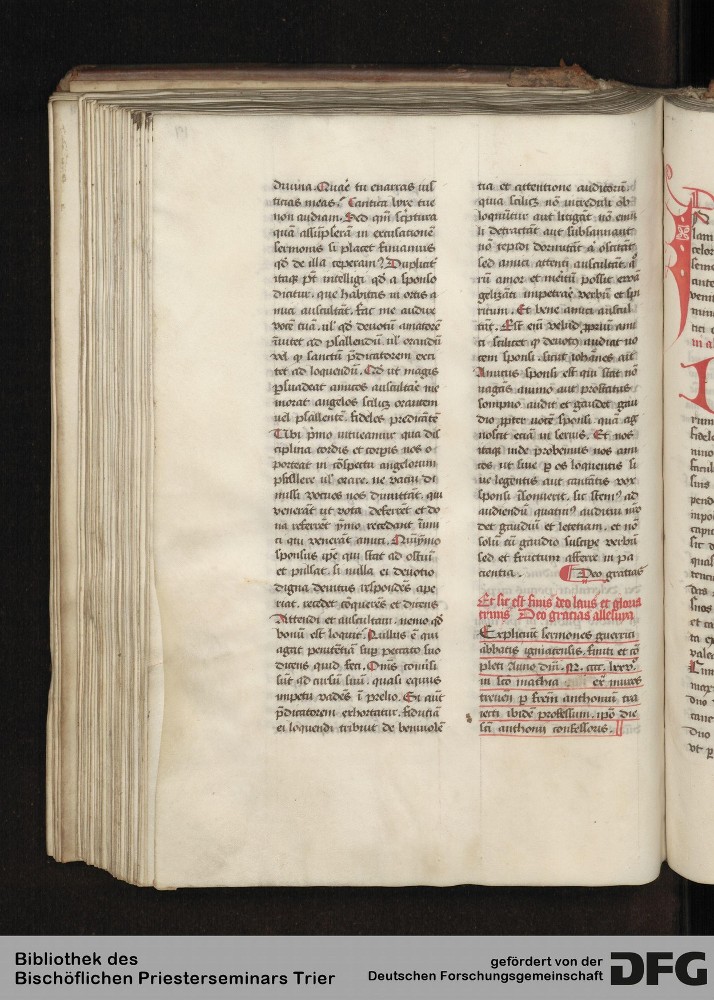 diuina. Quare tu enarras ius
ticias meas? Cantica lyre tue
non audiam. Sed qm̄ scͥptura
quā assūpserā in excusationē
sermonis si placet finiamus
qd̄ de illa ceperam? Duplicit̄
itaqꝫ pt̄ intelligi qd̄ a sponso
dicitur. que habitas in ortis a
mici auscultāt. fac me audire
vocē tuā. ul' qd̄ deuotū amatorē
īuitet ad psallendū. ul' orandū
vel qꝫ sanctū p̄dicatorem exci
tet ad loquendū. Qd̄ ut magis
ꝑsuadeat amicos auscultare me
morat angelos scilicꝫ orantem
uel psallentē. fideles predicātē
Ubi pͥmo intueamur qua dis
ciplina cordis et corpis nos o
porteat in cōspectu angelorum
psallere ul' orare. ne vacui di
missi vacuos nos dimittāt. qui
venerāt ut vota deferrēt et do
na referrēt ymo recedant īimi
ci qui venerāt amici. Quīymo
sponsus ip̄e qui stat ad ostiū
et pulsat. si nulla ei deuotio
digna deuotus respondēs ape
riat. recedet cōquerēs et dicens
Attendi et auscultaui. nemo qd̄
bonū est loquit'. Nullus ē qui
agat penitētiā suꝑ peccato suo
dicens quid feci. Om̄s cōuersi
sūt ad cursū suū. quasi equus
impetu vadēs ī prelio. Si aūt
p̄dicatorem exhortatur. fiduciā
ei loquendi tribuit de beniuolē
tia et attentione auditorū.
quia scilicꝫ nō increduli ob
loquūtur aut litigāt nō emu
li detractāt aut subsannāt
nō tepidi dormitāt aut oscitāt
sed amici attenti auscultāt. q̄
rū amor et meritū possit euā
gelizāti impetrare verbū et spi
ritum. Et bene amici auscul
tāt. Est eīm velud ꝓpriū ami
ci scilicet qꝫ deuote audiat uo
cem sponsi. sicut iohānes ait
Amicus sponsi est qui stat nō
uagās animo aut prostratus
sompno audit et gaudet gau
dio ꝓpter uocē sponsi quā ag
noscit etiā in seruis. Et nos
itaqꝫ inde probemus nos ami
cos. ut siue ꝑ os loquentis si
ue legentis aut cantātis vox
sponsi īsonuerit. sic stemꝰ ad
audiendū quatinꝰ auditui nr̄o
det gaudiū et leticiam. et nō
solū cū gaudio suscipe verbū
sed et fructum afferre in pa
cientia. Deo gratias
Et sic est finis deo laus et gloria
trinus Deo gracias alleluya
Expliciūt sermones guerrici
abbatis igniacensis. finiti et cō
pleti Anno dn̄i. M. cccc. lxxvͦ.
in sc̄o mathia ex̄ muros
treueren̄ ꝑ frēm anthoniū tra
iecti ibidē professum. ip̄o die
sc̄i anthonii confessoris.
Bibliothek des
Bischöflichen Priesterseminars Trier
gefördert von der
Deutschen Forschungsgemeinschaft
DFG